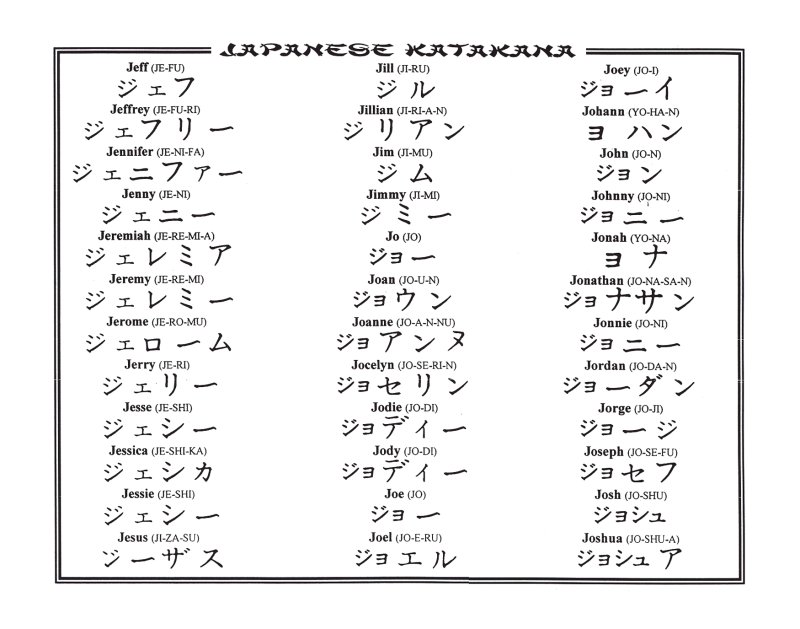 JAPANESE KATAKANA
Jeff (JE-FU)
ジェフ
Jeffrey (JE-FU-RI)
ジェフリー
Jennifer (JE-NI-FA)
ジェニファー
Jenny (JE-NI)
ジェニー
Jeremiah (JE-RE-MI-A)
ジェレミア
Jeremy (JE-RE-MI)
ジェレミー
Jerome (JE-RO-MU)
ジェローム
Jerry (JE-RI)
ジェリー
Jesse (JE-SHI)
ジェシー
Jessica (JE-SHI-KA)
ジェシカ
Jessie (JE-SHI)
ジェシー
Jesus (JI-ZA-SU)
ジーザス
Jill (JI-RU)
ジル
Jillian (JI-RI-A-N)
ジリアン
Jim (JI-MU)
ジム
Jimmy (JI-MI)
ジミー
Jo (JO)
ジョー
Joan (JO-U-N)
ジョウン
Joanne (JO-A-N-NU)
ジョアンヌ
Jocelyn (JO-SE-RI-N)
ジョセリン
Jodie (JO-DI)
ジョディー
Jody (JO-DI)
ジョディー
Joe (JO)
ジョー
Joel (JO-E-RU)
ジョエル
Joey (JO-I)
ジョーイ
Johann (YO-HA-N)
ヨハン
John (JO-N)
ジョン
Johnny (JO-NI)
ジョニー
Jonah (YO-NA)
ヨナ
Jonathan (JO-NA-SA-N)
ジョナサン
Jonnie (JO-NI)
ジョニー
Jordan (JO-DA-N)
ジョーダン
Jorge (JO-JI)
ジョージ
Joseph (JO-SE-FU)
ジョセフ
Josh (JO-SHU)
ジョシュ
Joshua (JO-SHU-A)
ジョシュア